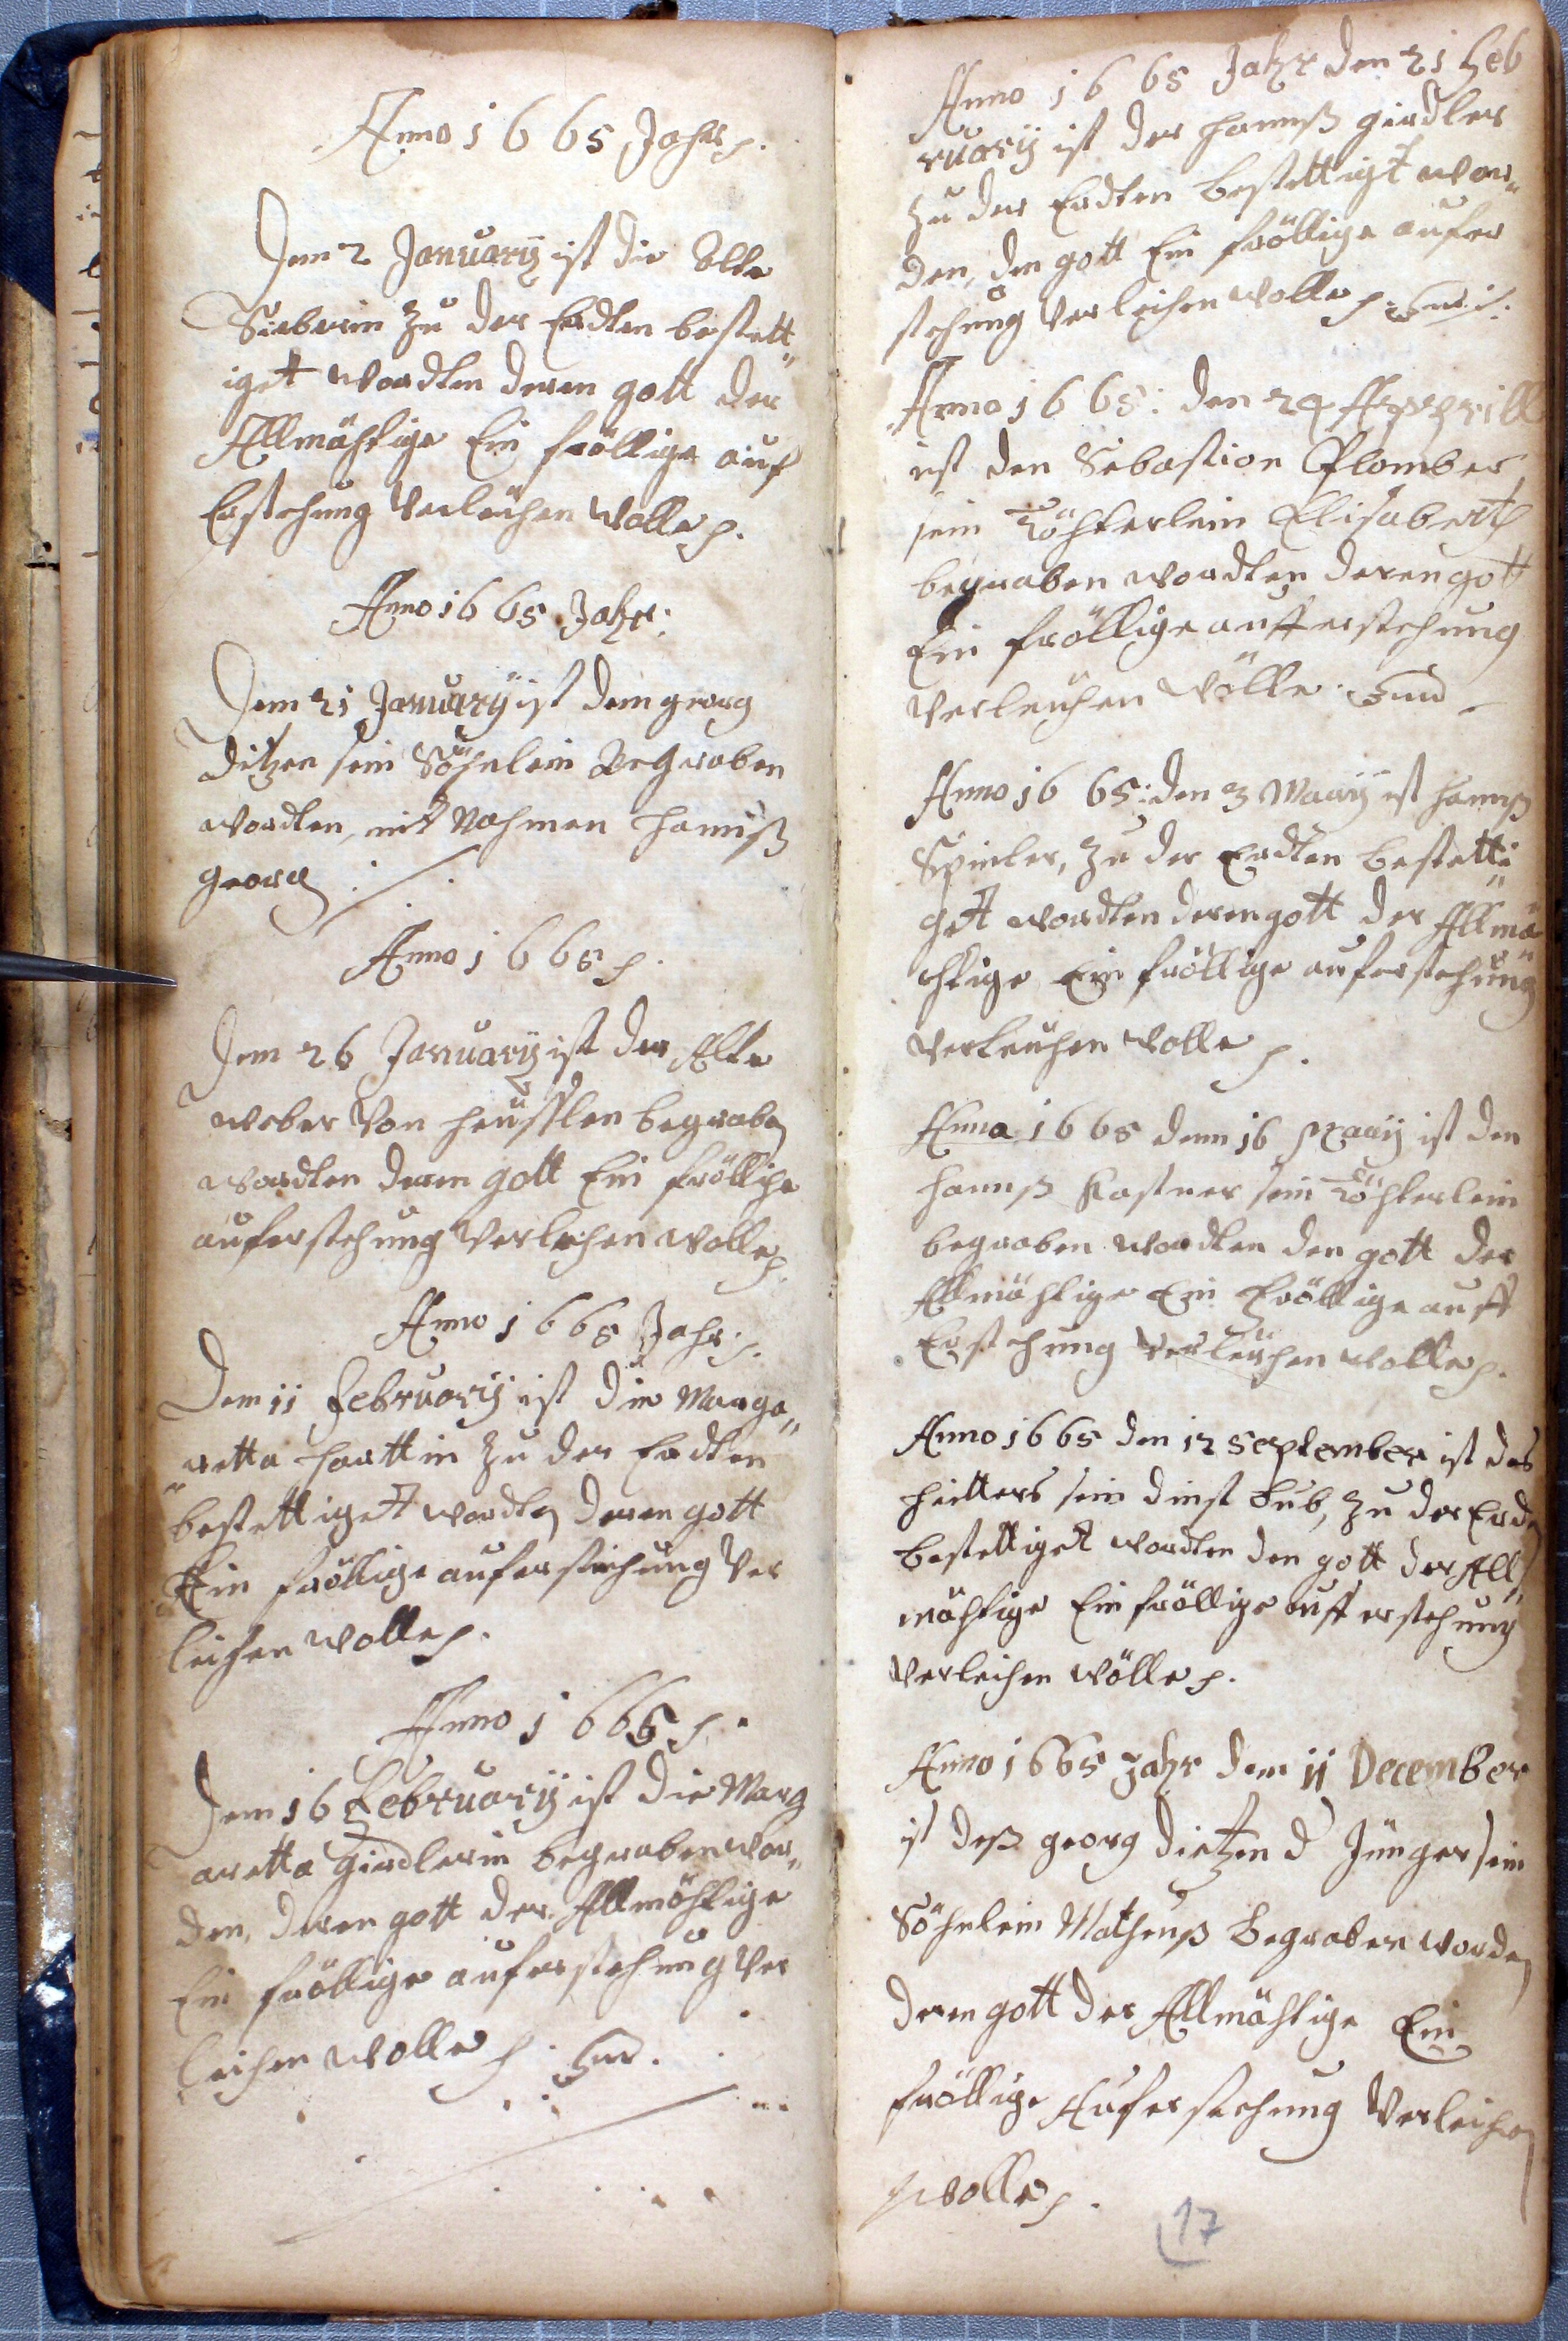 Anno 1665 Jahr.
Denn 2 January ist die Alte
Sieberin zu der Erdten bestett„
iget wordten deren gott der
Allmähtige Ein fröllige auf
Erstehung Verleuhen wolle.
Anno 1665 Jahr.
Denn 21 January ist dem georg
ditzen sein Söhnlein Begraben
wordten, mit Nahmen hannß
georg
Anno 1665.
Denn 26 January ist der Alte
weber Von heusslen begraben
wordten deren gott Ein fröllihe
auferstehung Verleihen wolle
Anno 1665 Jahr.
Dem 11 February ist die Marga„
„retta harttin zu der Erdten
bestettiget wordten deren gott
Ein fröllige auferstehung Ver
leihen wolle.
Anno 1665.
Denn 16 February ist die Marg
aretta girdlerin begraben wor„
den, deren gott der Allmöhtige
Ein fröllige auferstehung Ver
leihen wolle.
Anno 1665 Jahr den 21 Feb
ruary ist der hannß girdler
zu der Erdten bestettigt wor„
den, den gott Ein fröllige aufer
stehung Verleihen wolle
Anno 1665: den 24 Apprill
ist den Sebastian Plomber
sein Töhterlein Elisaberth
begraben wordten deren gott
Ein fröllige aufferstehung
Verleuhen wölle.
Anno 1665: den 3 Maay ist hannß
Spinler, zu der Erdten bestetti„
get wordten deren gott der Allmä„
htige Ein fröllige auferstehung
Verleuhen wolle.
Anna 1665 denn 16 Maay ist den
hannß Kastner sein Töhterlein
begraben wordten den gott der
Allmähtige Ein Fröllige auff
Erstehung Verleuhen wolle.
Anno 1665 den 12 September ist des
hütters sein dinst Bub, zu der Erden
bestettiget wordten den gott der All„
mähtige Ein fröllige aufferstehung
Verleihen wölle.
Anno 1665 Jahr dem 11 December
ist deß georg dietzen d Jünger sein
Söhnlein Matheuß Begraben worden
deren gott der Allmähtige Ein
fröllige Auferstehung Verleihen
wolle.
17